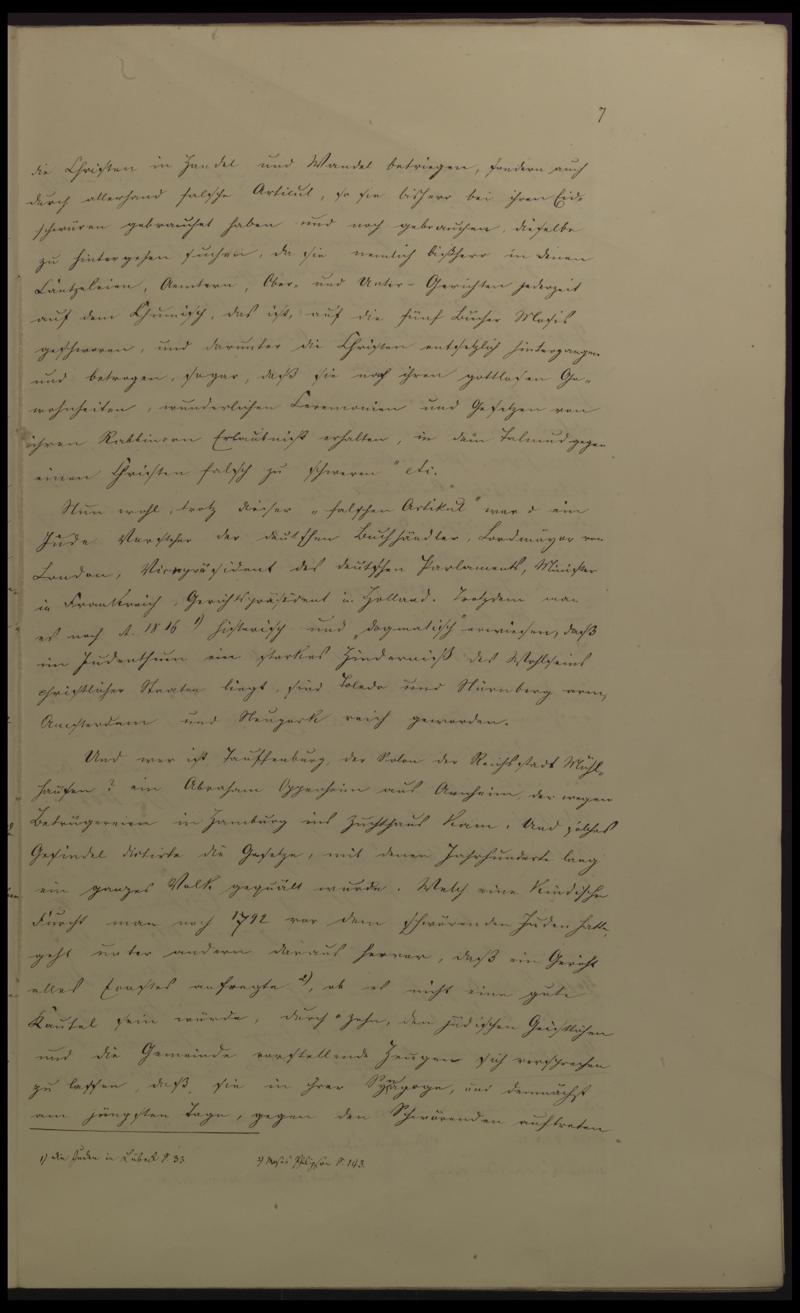 7
die Christen in Handel und Wandel betriegen, sondern auch
durch allerhand falsche Articul, so sie bisherr bei ihren Eid-
schwüren gebrauchet haben und noch gebrauchen, dieselbe
zu hintergehen suchen, da sie nemlich bißherr in denen
Cäntzeleien, Aemtern, Ober- und Unter-Gerichten jederzeit
auf dem Chumisch, das ist, auf die fünf Bücher Mosis
geschworen, und darunter die Christen entsetzlich hintergangen
und betrogen, sogar, daß sie nach ihren gottlosen Ge-
wohnheiten, wunderlichen Ceremonien und Gesetzen von
ihren Rabbinern Erlaubniß erhalten, in dem Talmud gegen
einen Christen falsch zu schweren" etc.
Nun wohl, trotz dieser "falschen Artikul" ward ein
Jude Vorsteher der deutschen Buchhändler, Lordmayor von
London, Vicepräsident des deutschen Parlaments, Minister
in Frankreich, Gerichtspräsident in Holland. Trotzdem man
es noch A. 1816 1) historisch und "dogmatisch" erwiesen, daß
im Judenthum ein starkes Hinderniß des Wohlseins
christlicher Staaten liegt, sind Toledo und Nürnberg arm,
Amsterdam und Neuyork reich geworden.
Und wer ist Tauffenburg, der Solon der Reichsstadt Mühl-
hausen? ein Abraham Oppenheim aus Arnheim, der wegen
Betrügereien in Hamburg ins Zuchthaus kam. Und solches
Gesindel dictirte die Gesetze, mit denen Jahrhunderte lang
ein ganzes Volk gequält wurde. Welch eine kindische
Furcht man noch 1792 vor dem schwörenden Juden hatte,
geht unter andern daraus hervor, daß ein Gericht
alles Ernstes anfragte 2), ob es nicht eine gute
Kautel sein würde, durch zehn, den jüdischen Geistlichen
und die Gemeinde vorstellende Zeugen sich versprechen
zu lassen, daß sie in ihrer Synagoge, und demnächst
am jüngsten Tage, gegen den Schwörenden auftreten
1) Die Juden in Lübeck S. 33. 2) Moses Philipson S. 143.